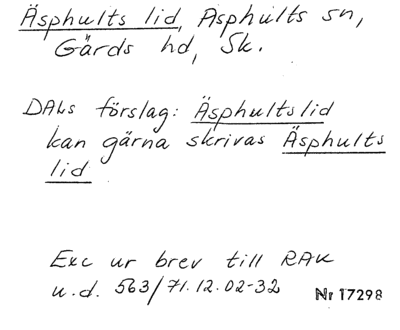 Äsphults lid, Äsphults sn,
Gärds hd, Sk.
DALs förslag: Äsphultslid
kan gärna skrivas Äsphults
lid
Exc ur brev till RAK
u.d. 563/71.12.02-32 Nr 17298